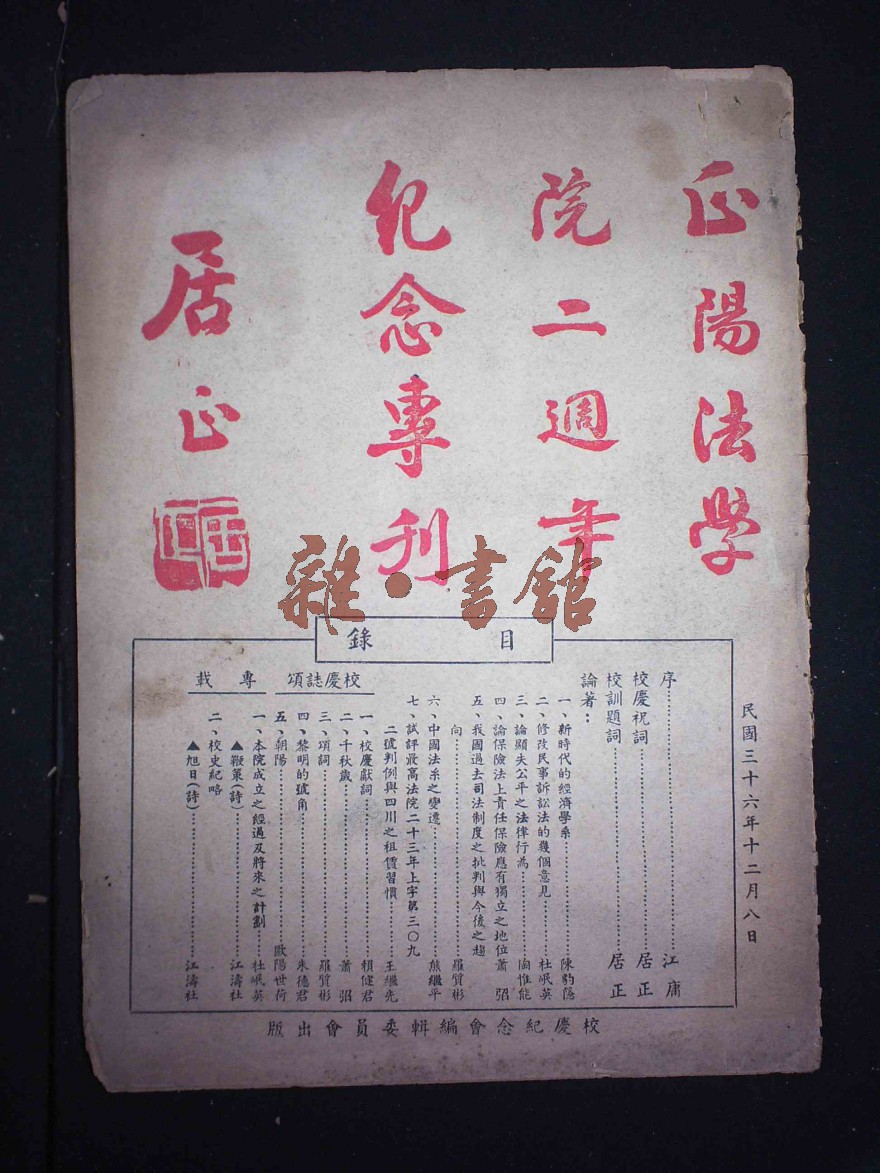 正陽法學
院二週年
紀念專刊
居正
雜·書館
目錄
民國三十六年十二月八日
序……江庸
校慶祝詞……居正
校訓題詞……居正
論著：
一、新時代的經濟學系……陳豹隱
二、修改民事訴訟法的幾個意見……杜岷英
三、論顯失公平之法律行為……陶惟能
四、論保險法上責任保險應有獨立之地位 蕭弨
五、我國過去司法制度之批判與今後之趨
向……羅質彬
六、中國法系之變遷……熊繼平
七、試評最高法院二十三年上字第三〇九
二號判例與四川之租賃習慣……王繼先
校慶誌項
一、校慶獻詞……賴健君
二、千秋歲……蕭弨
三、項詞……羅質彬
四、黎明的號角……朱德君
五、朝陽……歐陽世荷
專載
一、本院成立之經過及將來之計劃……杜岷英
▲鞭策(詩)……江濤社
二、校史紀略
▲旭日(詩)……江濤社
校慶紀念會編輯委員會出版